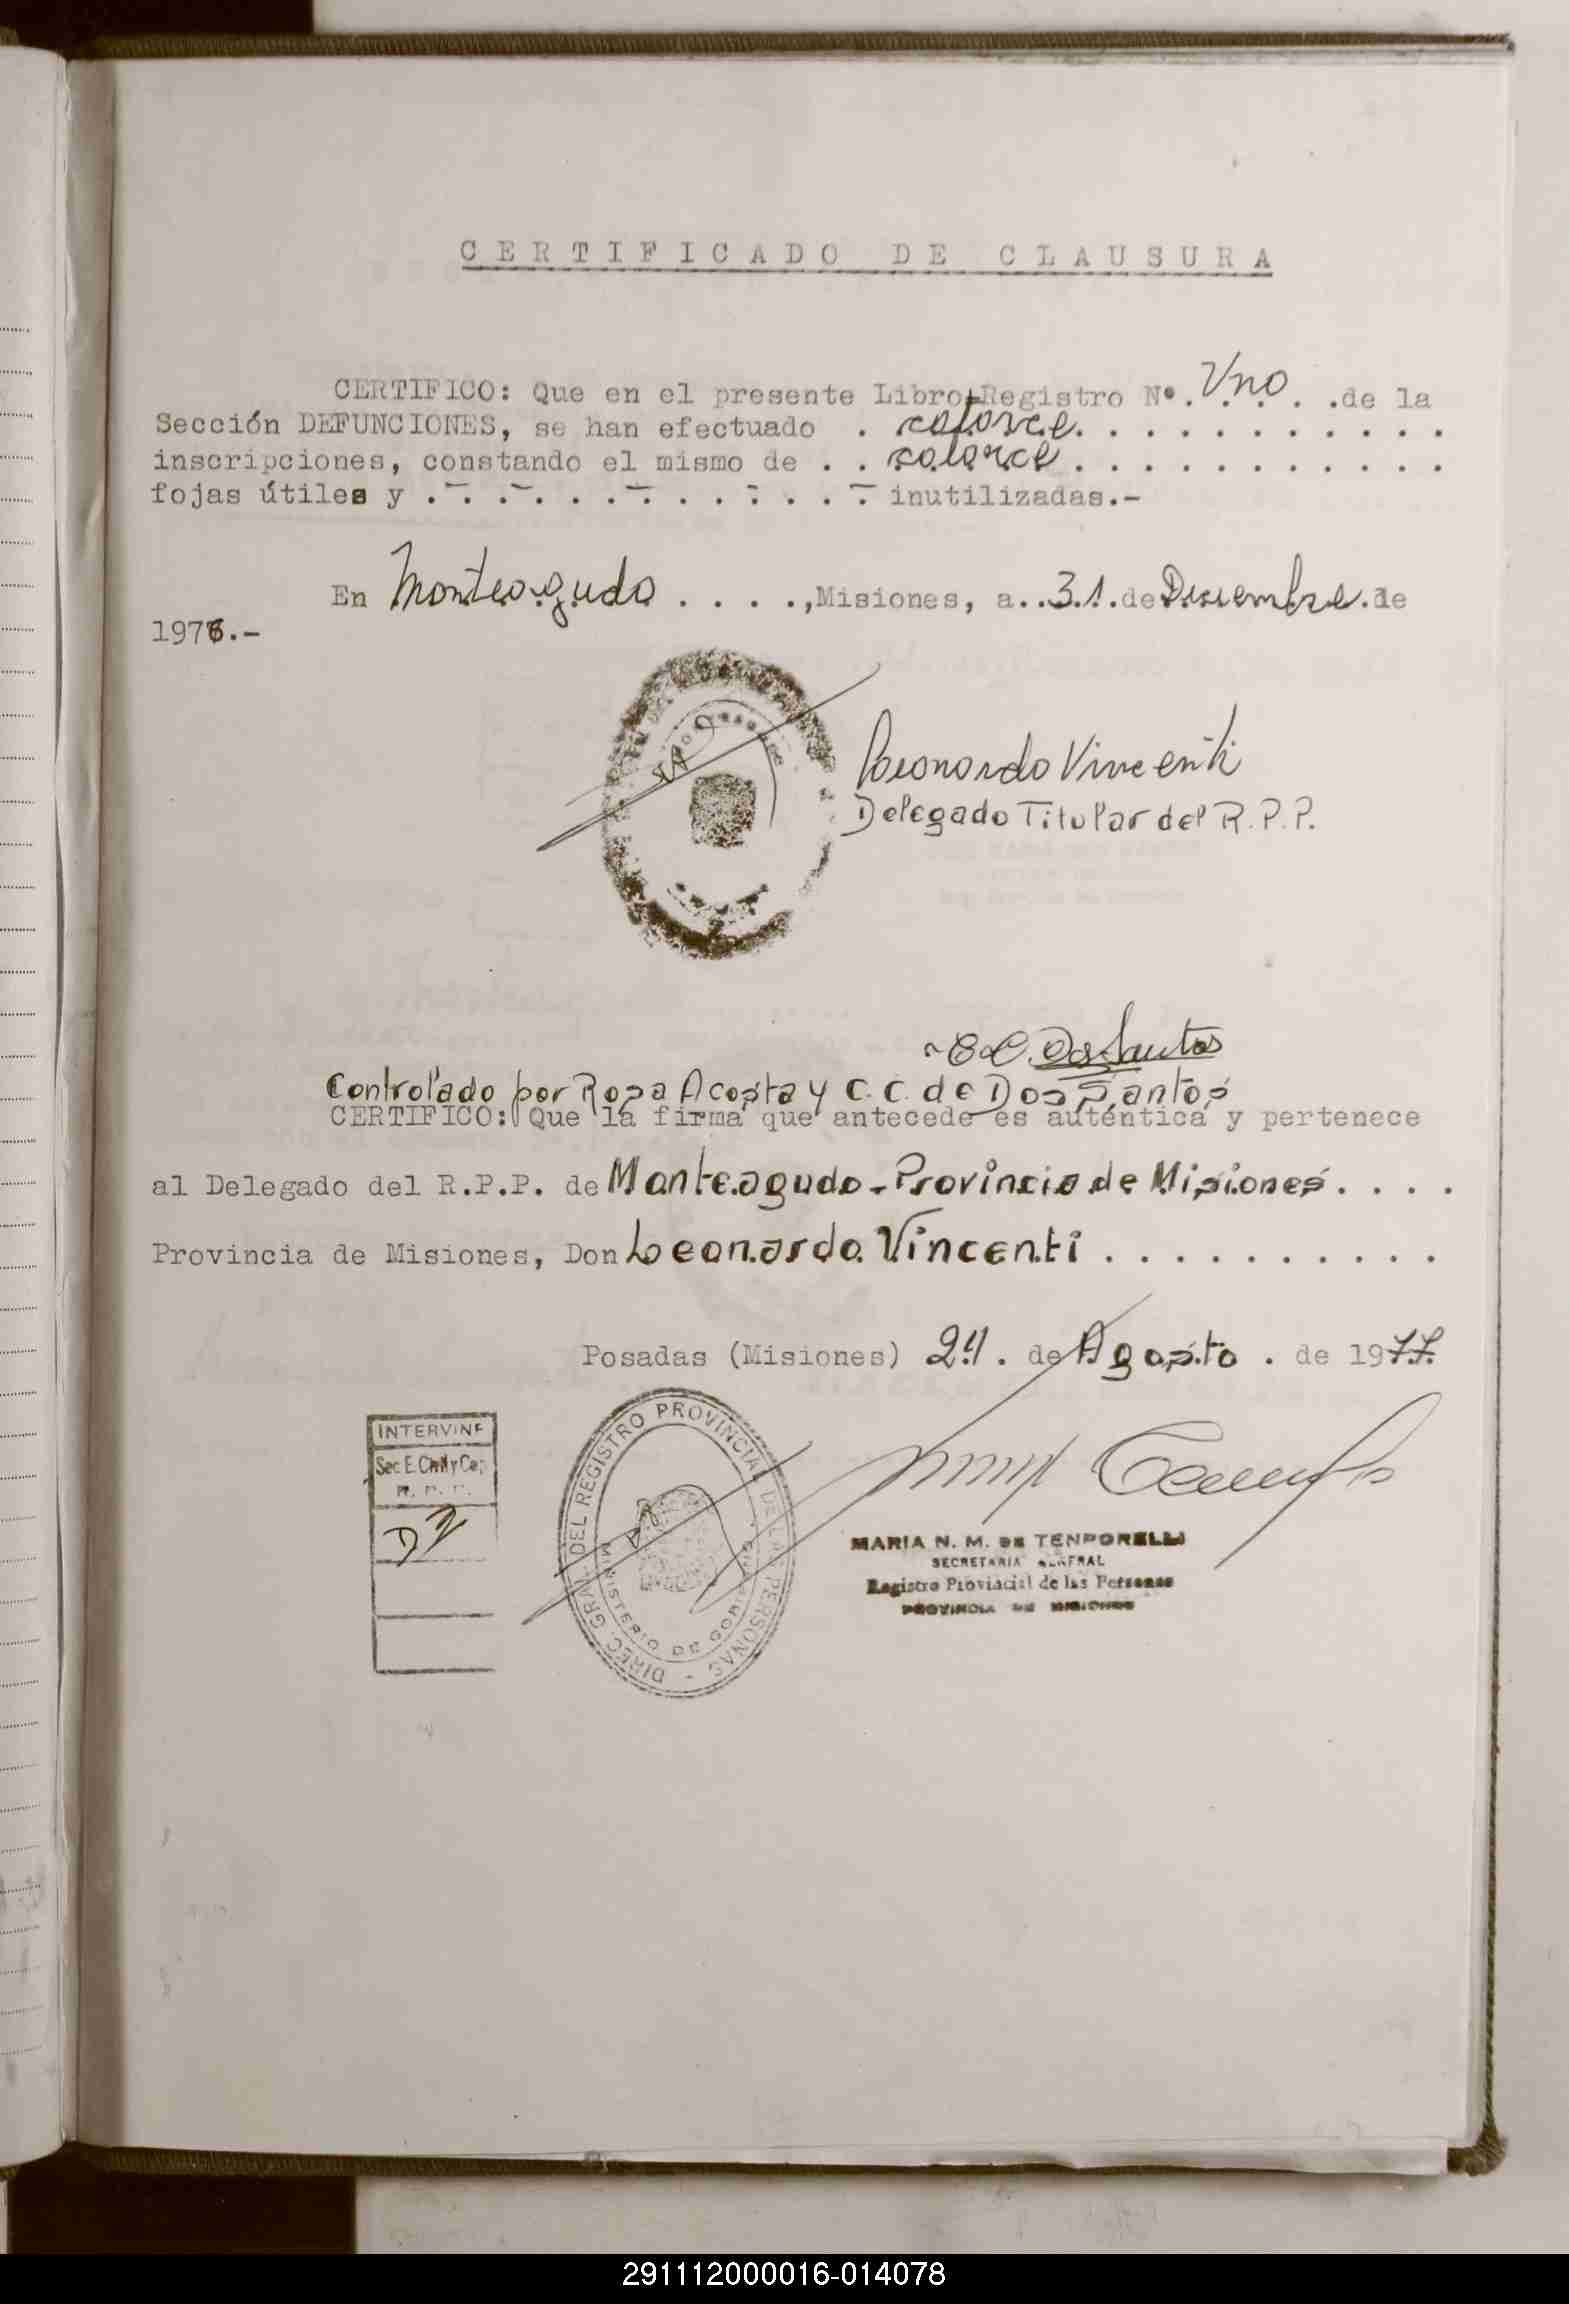 CERTIFICADO DE CLAUSURA
CERTIFICO: Que en el presente Libro-Registro Nº. Uno . .de la
Sección DEFUNCIONES, se han efectuado . catorce. . . . . . . . . . .
inscripciones, constando el mismo de . . catorce . . . . . . . . . . .
fojas útiles y .-. .-. . . .-. . . .-. . .- inutilizadas.-
En Monteagudo . . . ., Misiones, a..31.de Diciembre.de
1976.-
Leonardo Vincenti
Delegado Titular del R.P.P.
C.C. Dos Santos
Controlado por Rosa Acosta y C.C. de Dos Santos
CERTIFICO: Que la firma que antecede es auténtica y pertenece
al Delegado del R.P.P. de Monteagudo - Provincia de Misiones. . . .
Provincia de Misiones, Don Leonardo Vincenti . . . . . . . . . .
Posadas (Misiones) 24. de Agosto . de 1977.
INTERVINE
Sec. E. Civil y Cap.
R. P. P.
DIREC. GRAL. DEL REGISTRO PROVINCIAL DE LAS PERSONAS -
MINISTERIO DE GOBIERNO
MARIA N. M. DE TENPORELLI
SECRETARIA GENERAL
Registro Provincial de las Personas
PROVINCIA DE MISIONES
291112000016-014078